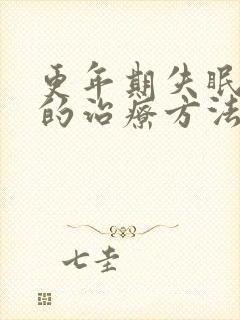 更年期失眠
的治疗方法
七圭